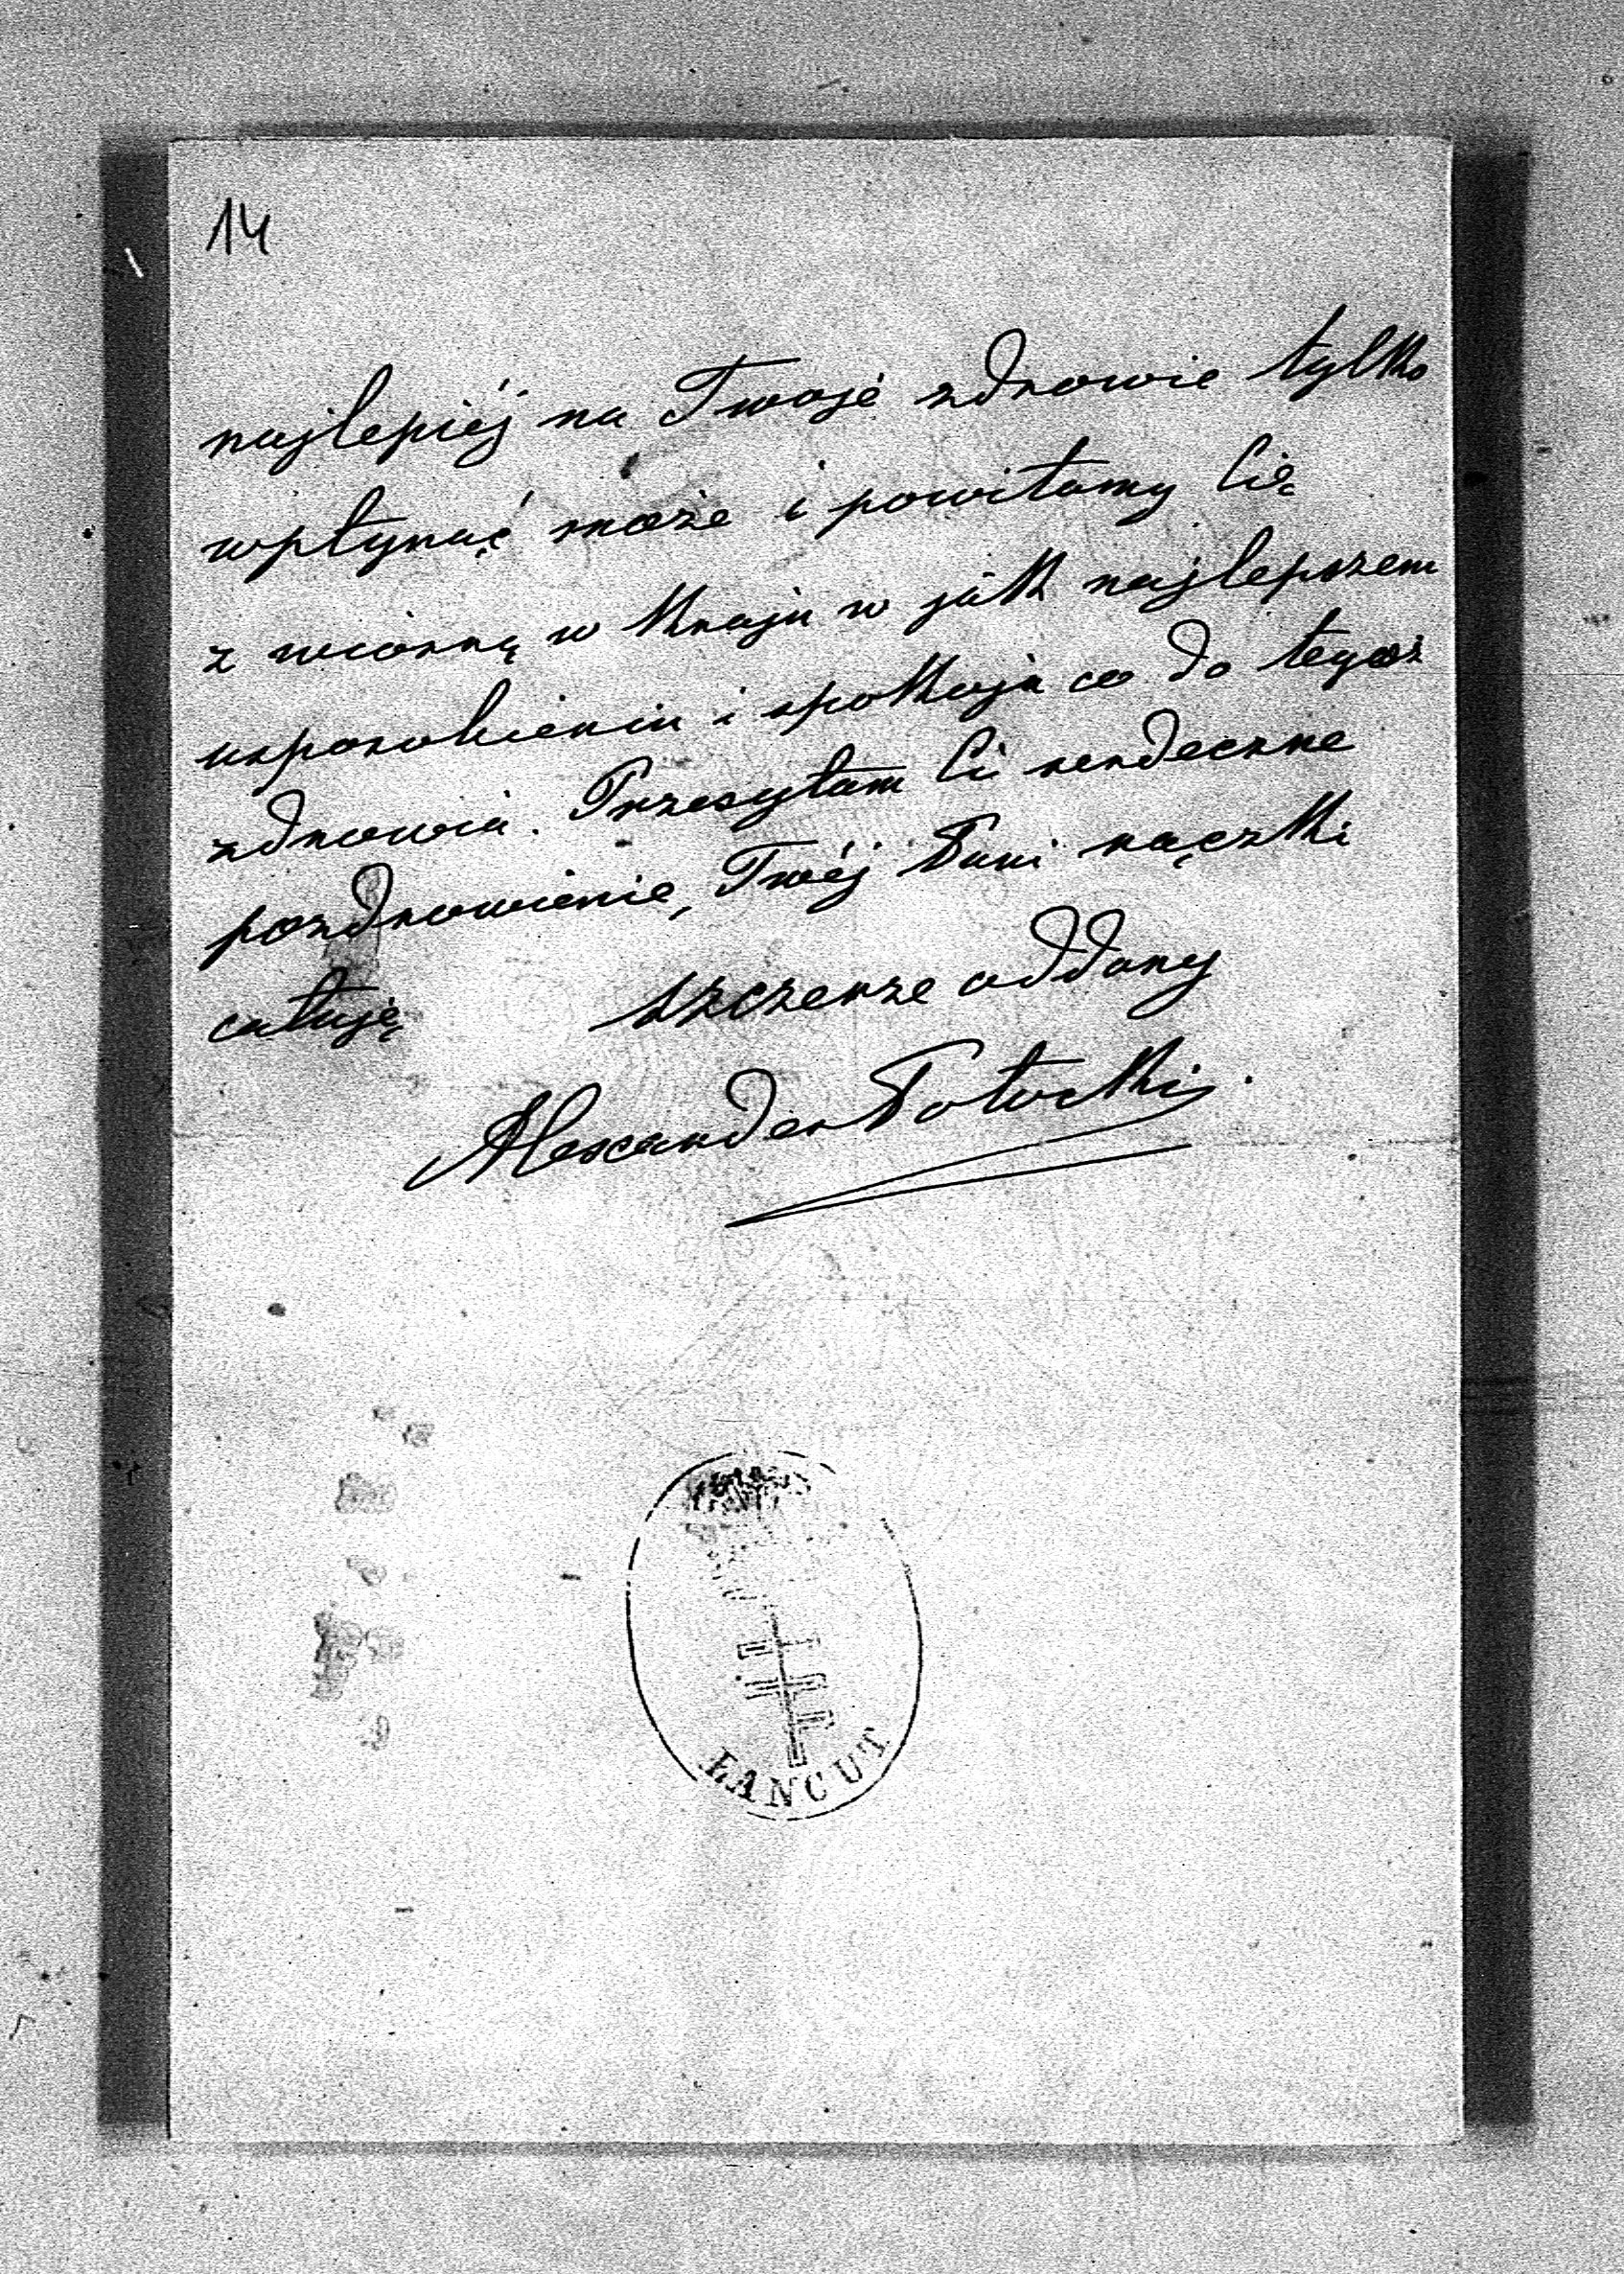 14
najlepiéj na Twoje zdrowie tylko
wpłynąć może i powitamy Cię
z wiosną w Kraju w jak najlepszem
usposobieniu i spokoju co do tegoż
zdrowia. Przesyłam Ci serdeczne
pozdrowienie, Twéj Pani rączki
całuję szczerze oddany
Alexander Potocki.
ŁANCUT